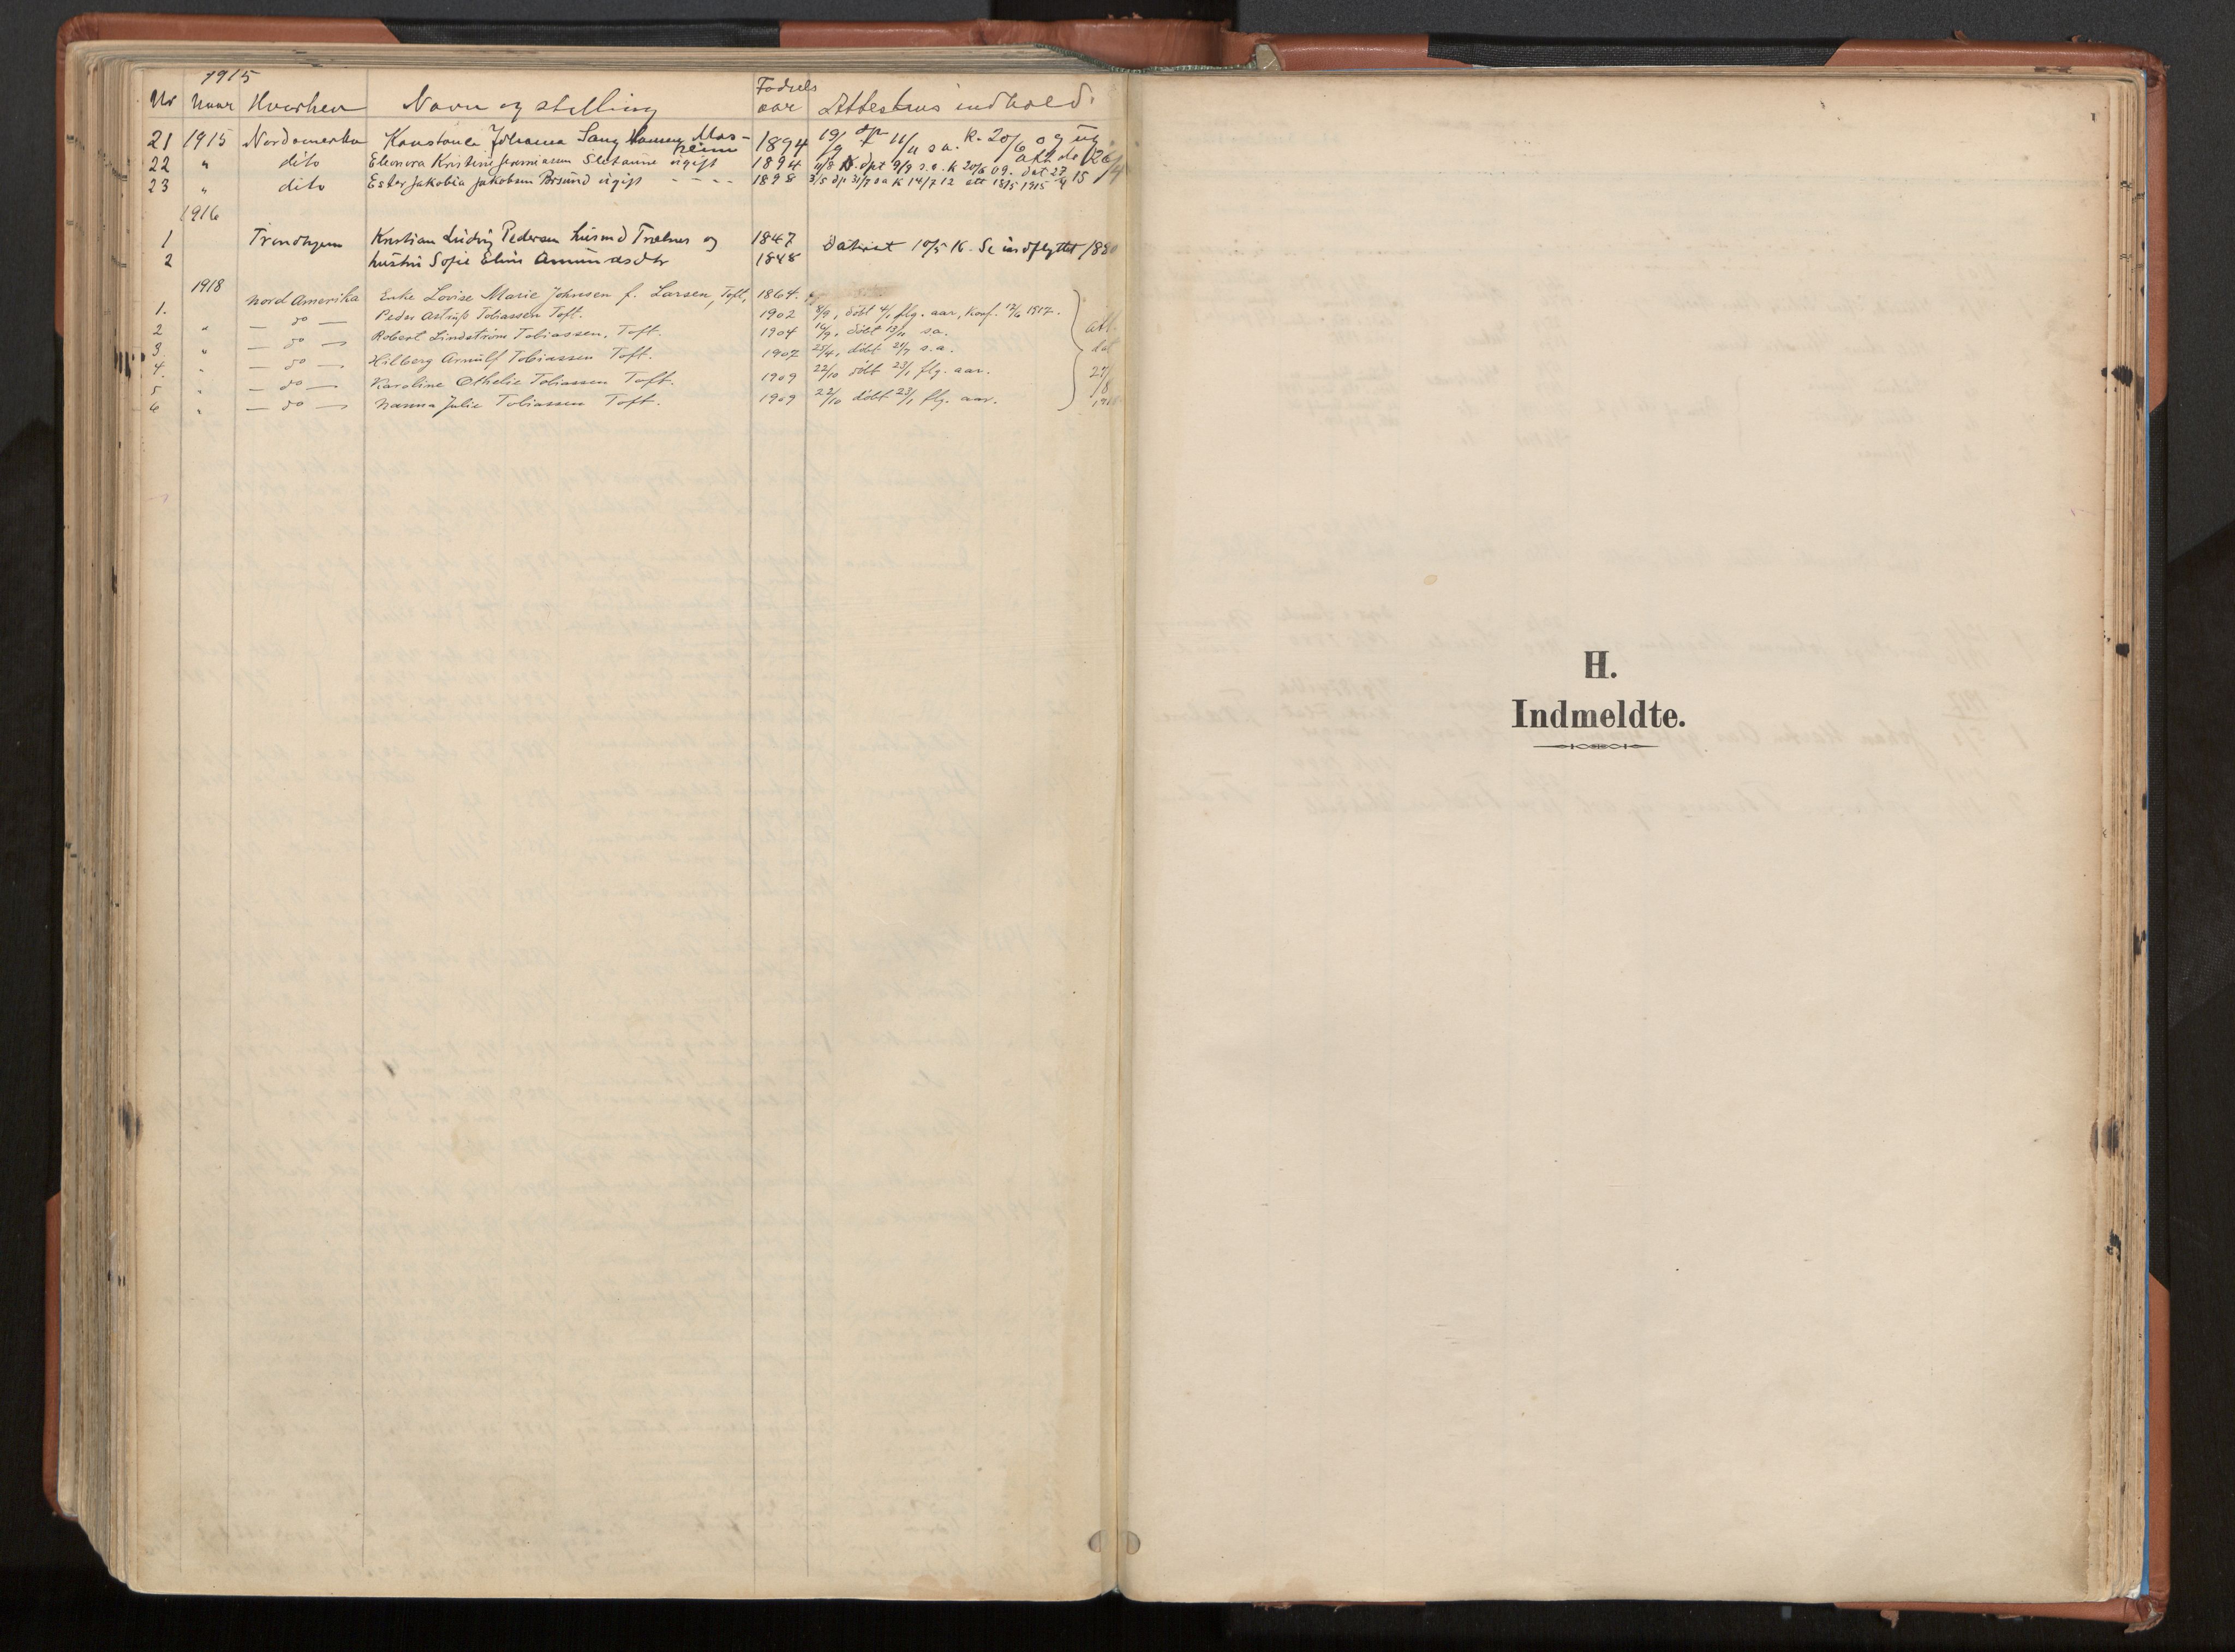 1915
Nr Naar Hvorhen Navn og stilling Fødselsaar Attestens indhold.
21 1915 Nordamerika Konstance Johanna Hansen 1894 19/9 dp 11/11 s.a. K. 20/6 09 ug
22 " dito Eleonora Kristine Jeremiassen ugift 1894 11/8 dpt 9/9 s.a. K 20/6 09. dat 27/4 15
23 " dito Ester Jakobia Jakobsen ugift - - - - 1898 3/5 dp 31/7 sa K 14/7 12 att 18/5 1915
1916
1 Trondhjem Kristian Ludvig Pedersen husmd Trælnes og 1847 Datirt 10/5 16. Se indflyttet 1880
2 hustru Sofie Eline Amundsdtr 1848
1918
1. Nord Amerika Enke Lovise Marie Johnsen f. Larsen, Toft, 1864.
2 " — do — Peder Tobiassen Toft. 1902 8/9, döbt 4/1 flg. aar, Konf. 17/6 1917.
3. " — do — Robert Lindström Tobiassen, Toft. 1904 16/9, döbt 13/11 sa.
4. " — do — Hilberg Arnulf Tobiassen Toft. 1907 25/4, döbt 21/7 s.a.
5 " — do — Karoline Othelie Tobiassen Toft. 1909 22/10 döbt 23/1 flg. aar.
6 " — do — Nanna Julie Tobiassen Toft. 1909 22/10 döbt 23/1 flg. aar.
att.
dat
27/8
H.
Indmeldte.